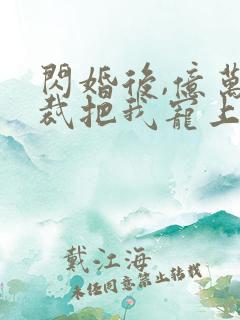 閃婚後,億萬
裁把我寵上
戴江海
未經同意禁止轉載